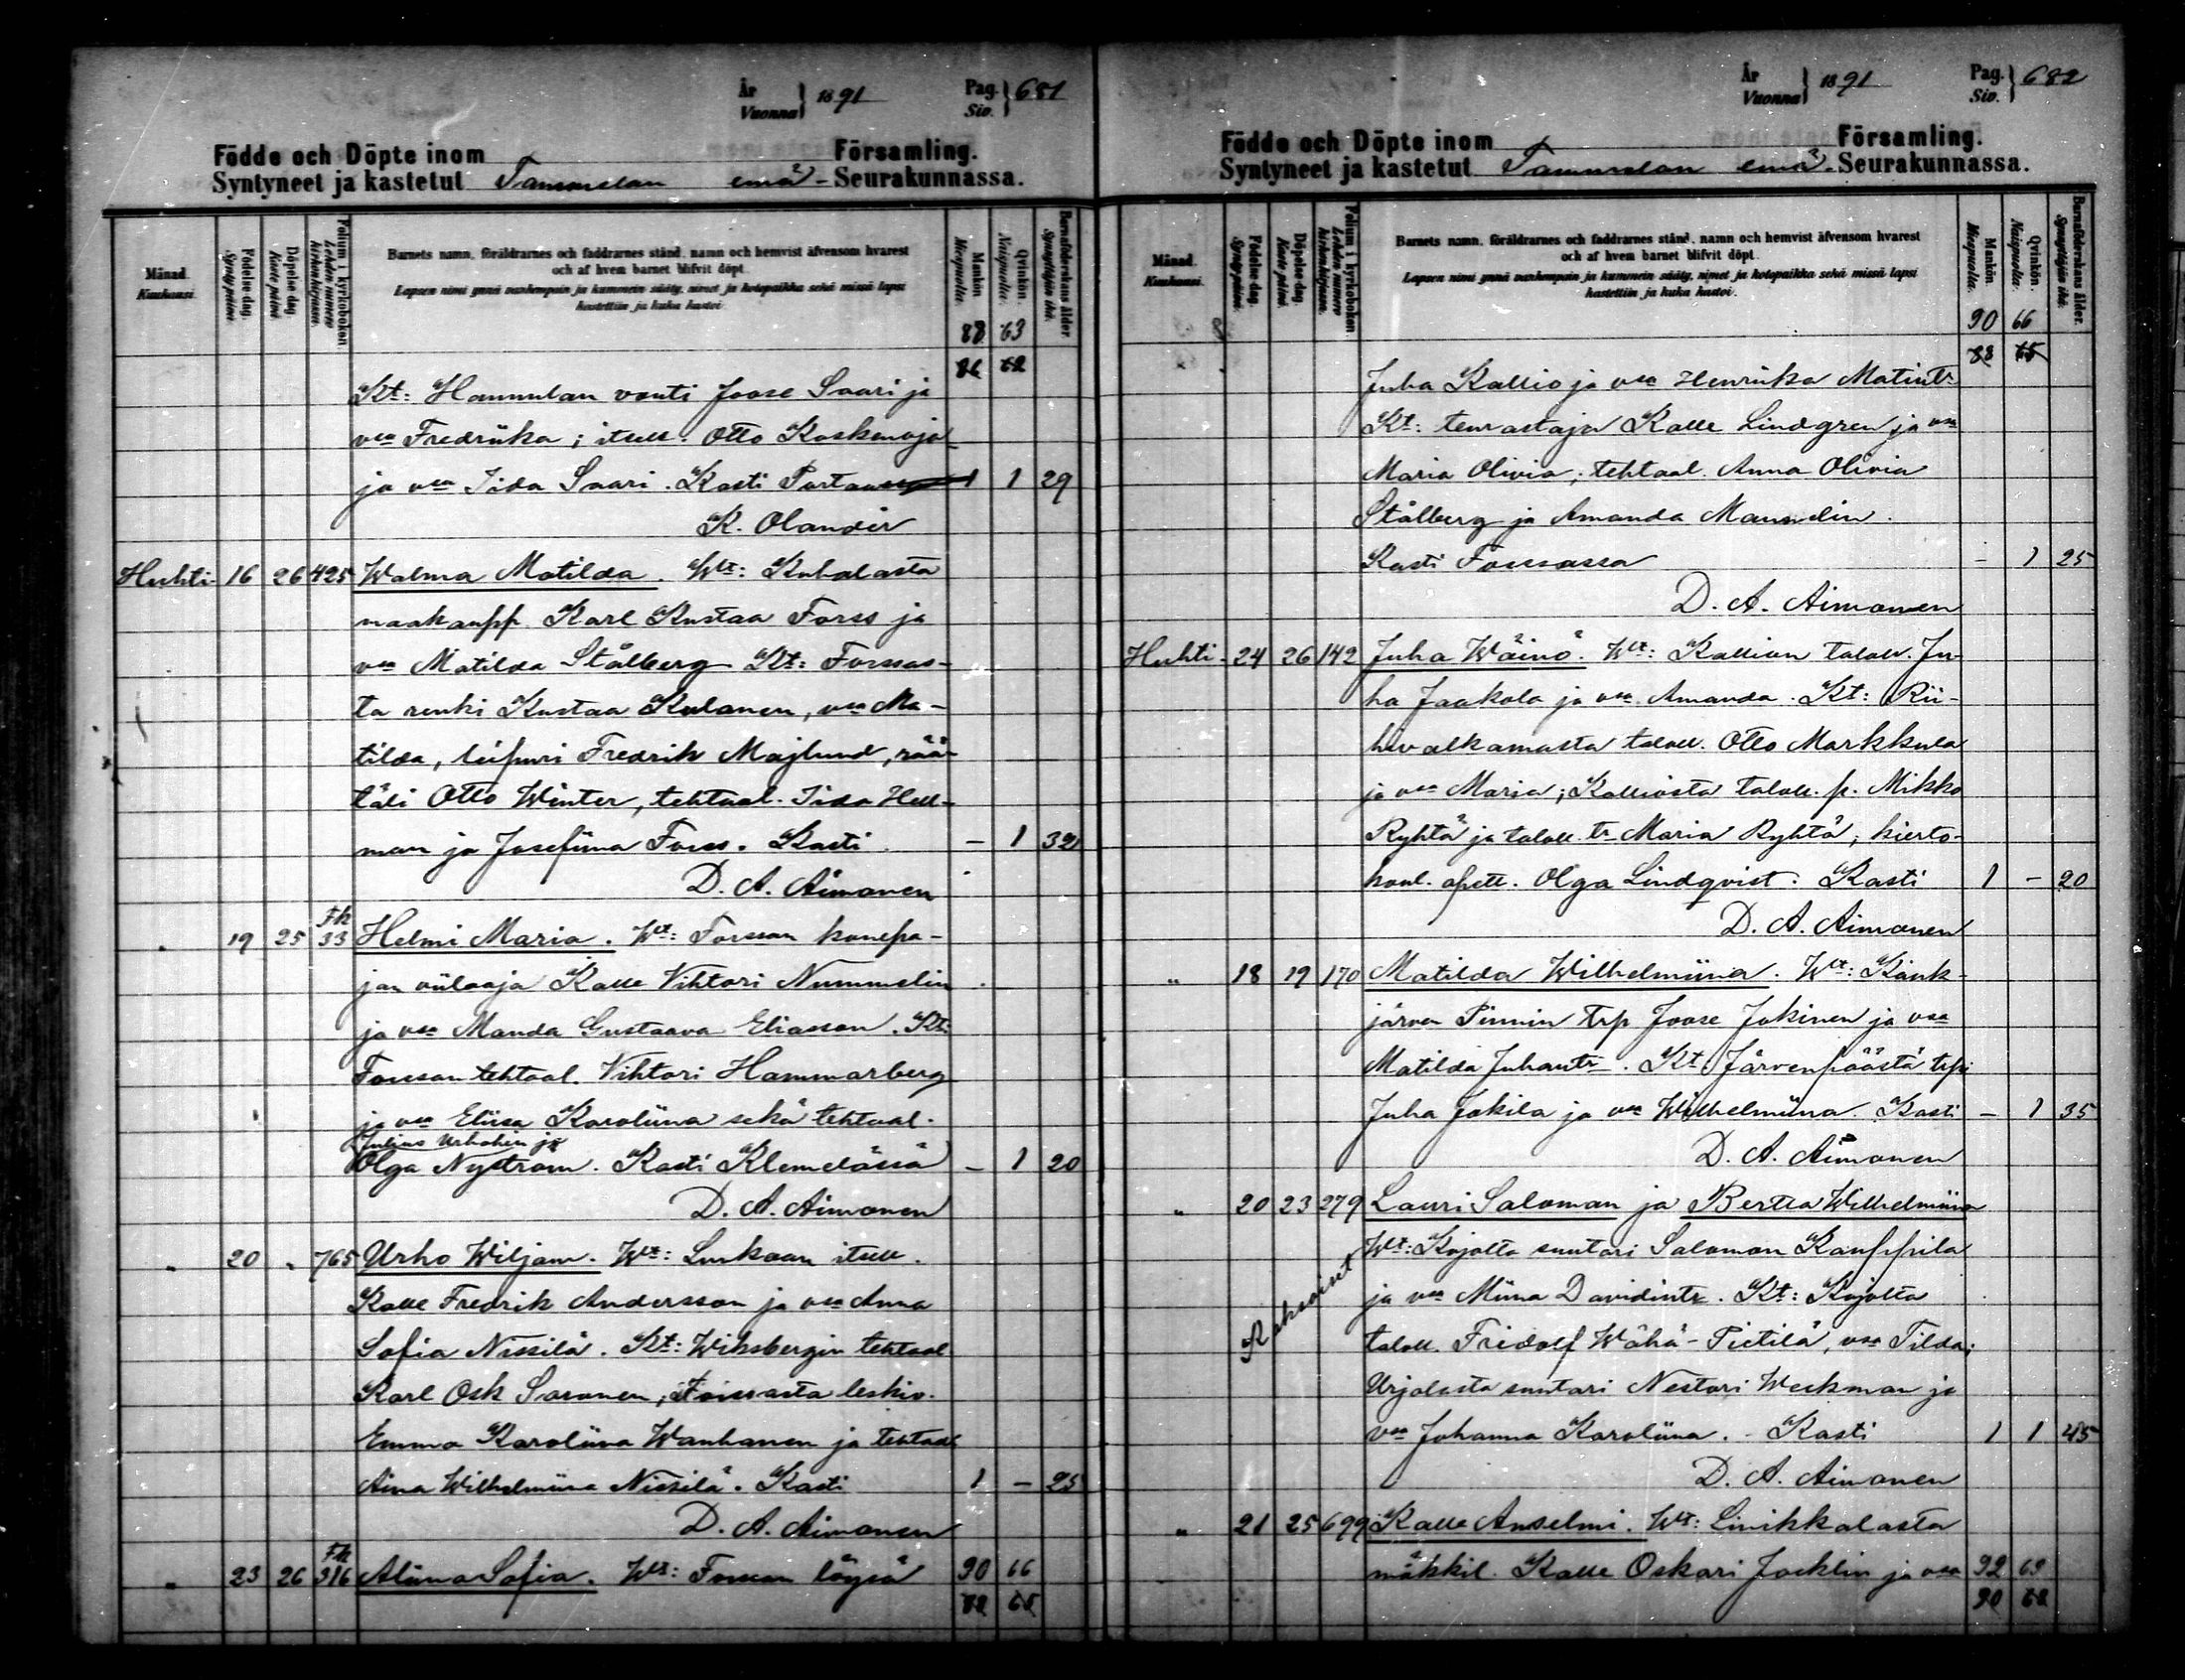 År Vuonna } 1891 Pag. Siv. } 681
Födde och Döpte inom Församling.
Syntyneet ja kastetut Tammelan emä- Seurakunnassa.
Månad. Kuukausi.
Födelse dag. Synty päivä.
Döpelse dag. Kaste päivä.
Folium i kyrkoboken. Lehden numero kirkonkirjassa.
Barnets namn, föräldrarnes och faddrarnes stånd, namn och hemvist äfvensom hvarest
och af hvem barnet blifvit döpt.
Lapsen nimi ynnä vanhempain ja kummein sääty, nimet ja kotopaikka sekä missä lapsi
kastettiin ja kuka kastoi.
Mankön. Miespuolta.
Qvinkön. Naispuolta.
Barnaföderskans ålder. Synyttäjän ikä.
88 63
86 62
Kt: Hannulan vouti Joose Saari ja
vmo Fredriika; itsell. Otto Koskenoja
ja vmo Iida Saari. Kasti 1 29
K. Olander
Huhti- 16 26 425 Walma Matilda. Wt: Kuhalasta
maakaupp. Karl Kustaa Forss ja
vmo Matilda Stålberg Kt: Forssas-
ta renki Kustaa Kulanen, vmo Ma-
tilda, leipuri Fredrik Majlund, rää-
täli Otto Winter, tehtaal. Iida Hell-
man ja Josefiina Forss. Kasti — 1 32
D. A. Aimonen
" 19 25 Fk 33 Helmi Maria. Wt: Forssan konepa-
jan viilaaja Kalle Vihtori Nummelin
ja vmo Manda Gustaava Eliasson. Kt:
Forssan tehtaal. Vihtori Hammarberg
ja vmo Eliisa Karoliina sekä tehtaal.
Julius Urhokin ja
Olga Nyström. Kasti Klemelässä — 1 20
D. A. Aimonen
" 20 " 765 Urho Wiljam. Wt: Lunkaan itsell.
Kalle Fredrik Andersson ja vmo Anna
Sofia Nissilä. Kt: Wiksbergin tehtaal
Karl Osk Saronen; Forssasta leskiv.
Emma Karoliina Wanhanen ja tehtaal
Aina Wilhelmiina Nissilä. Kasti 1 — 25
D. A. Aimonen
" 23 26 Fk 316 Aliina Sofia. Wt: Forssan löysä 90 66
88 65
År Vuonna } 1891 Pag. Siv. } 682
Födde och Döpte inom Församling.
Syntyneet ja kastetut Tammelan emä- Seurakunnassa.
Månad. Kuukausi.
Födelse dag. Synty päivä.
Döpelse dag. Kaste päivä.
Folium i kyrkoboken. Lehden numero kirkonkirjassa.
Barnets namn, föräldrarnes och faddrarnes stånd, namn och hemvist äfvensom hvarest
och af hvem barnet blifvit döpt.
Lapsen nimi ynnä vanhempain ja kummein sääty, nimet ja kotopaikka sekä missä lapsi
kastettiin ja kuka kastoi.
Mankön. Miespuolta.
Qvinkön. Naispuolta.
Barnaföderskans ålder. Synyttäjän ikä.
90 66
88 65
Juha Kallio ja vmo Henriika Matintr
Kt: teurastaja Kalle Lindgren ja vmo
Maria Olivia; tehtaal. Anna Olivia
Stålberg ja Amanda Maunelin.
Kasti Forssassa — 1 25
D. A. Aimonen
Huhti- 24 26 142 Juha Wäinö. Wt: Kallion taloll. Ju-
ha Jaakola ja vmo Amanda. Kt: Rii-
hivalkamasta taloll. Otto Markkula
ja vmo Maria; Kalliosta taloll. p. Mikko
Ryhtä ja taloll. tr Maria Ryhtä; kierto-
koul. opett. Olga Lindqvist. Kasti 1 — 20
D. A. Aimonen
" 18 19 170 Matilda Wilhelmiina. Wt: Kauk-
järven Pinnin trp Joose Jokinen ja vmo
Matilda Juhantr. Kt: Järvenpäästä trp:
Juha Jokila ja vmo Wilhelmiina. Kasti — 1 35
D. A. Aimonen
" 20 23 279 Lauri Saloman ja Bertta Wilhelmiina
Kaksoiset
Wt: Kojolta suutari Salomon Kauppila
ja vmo Miina Davidintr. Kt: Kojolta
taloll. Fridolf Wähä-Pietilä, vmo Tilda;
Urjalasta suutari Nestori Weckman ja
vmo Johanna Karoliina. - Kasti 1 1 45
D. A. Aimonen
" 21 25 699 Kalle Anselmi. Wt: Linikkalasta
mäkkil. Kalle Oskari Jacklin ja vmo 92 69
90 68